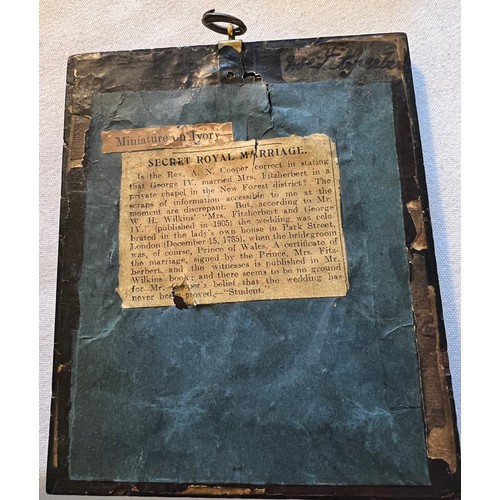 Miniature on Ivory
SECRET ROYAL MARRIAGE.
Is the Rev. A. N. Cooper correct in stating
that George IV. married Mrs. Fitzherbert in a
private chapel in the New Forest district? The
scraps of information accessible to me at the
moment are discrepant. But, according to Mr.
W. H. Wilkins' "Mrs. Fitzherbert and George
IV." (published in 1905) the wedding was cele-
brated in the lady's own house in Park Street,
London (December 15, 1785), when the bridegroom
was, of course, Prince of Wales. A certificate of
the marriage, signed by the Prince, Mrs. Fitz-
herbert, and the witnesses is published in Mr.
Wilkins' book; and there seems to be no ground
for Mr. per's belief that the wedding has
never been moved.—"Student."